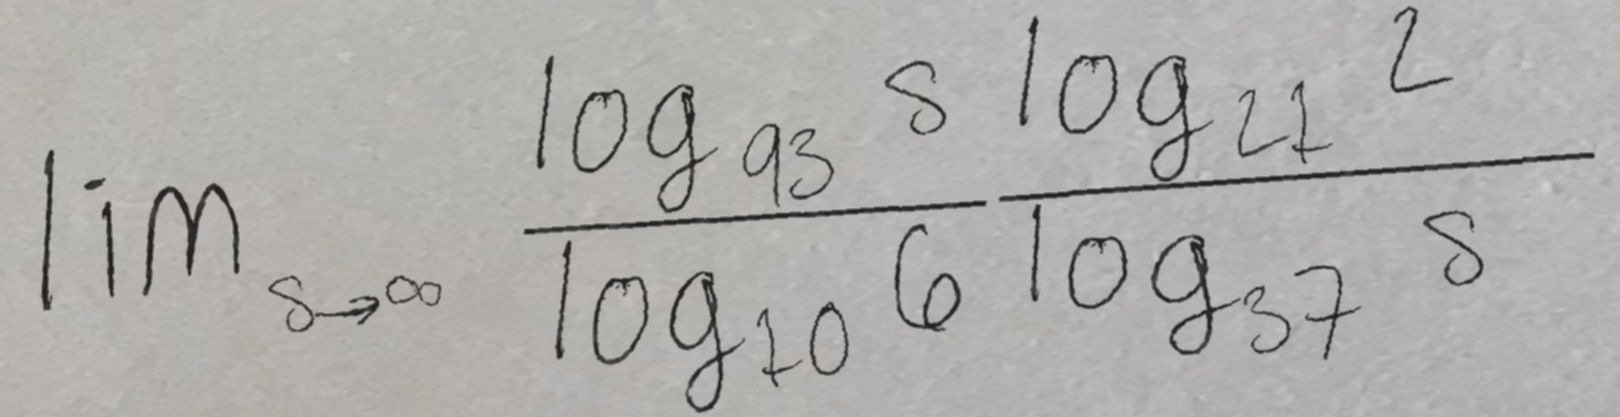 \lim_{s \to \infty} \frac{\log_{93} s}{\log_{10} 6} \frac{\log_{21} 2}{\log_{37} s}